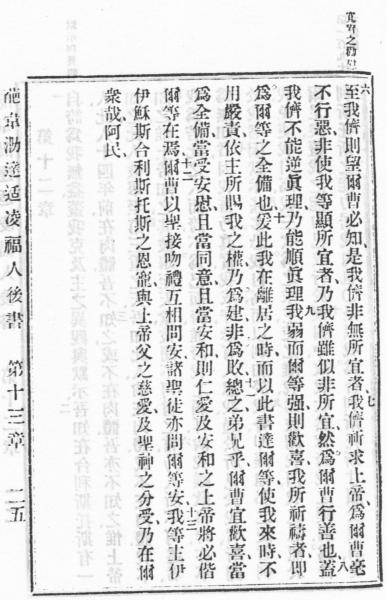 六至我儕則望爾曹必知是我儕非無所宜者七我儕祈求上帝爲爾曹毫
不行惡非使我等顯所宜者乃我儕雖似非所宜然爲爾曹行善也八蓋
我儕不能逆眞理乃能順眞理九我弱而爾等强則歡喜我所祈禱者即
爲爾等之全備也十爰此我在離居之時而以此書達爾等使我來時不
用嚴責依主所賜我之權乃爲建非爲敗十一總之弟兄乎爾曹宜歡喜當
爲全備當受安慰且當同意且當安和則仁愛及安和之上帝將必偕
爾等在焉十二爾曹以聖接吻禮互相問安諸聖徒亦問爾等安十三我等主伊
伊穌斯合利斯托斯之恩寵與上帝父之慈愛及聖神之分受乃在爾
衆哉阿民
葩韋泐達适凌福人後書 第十三章 二五